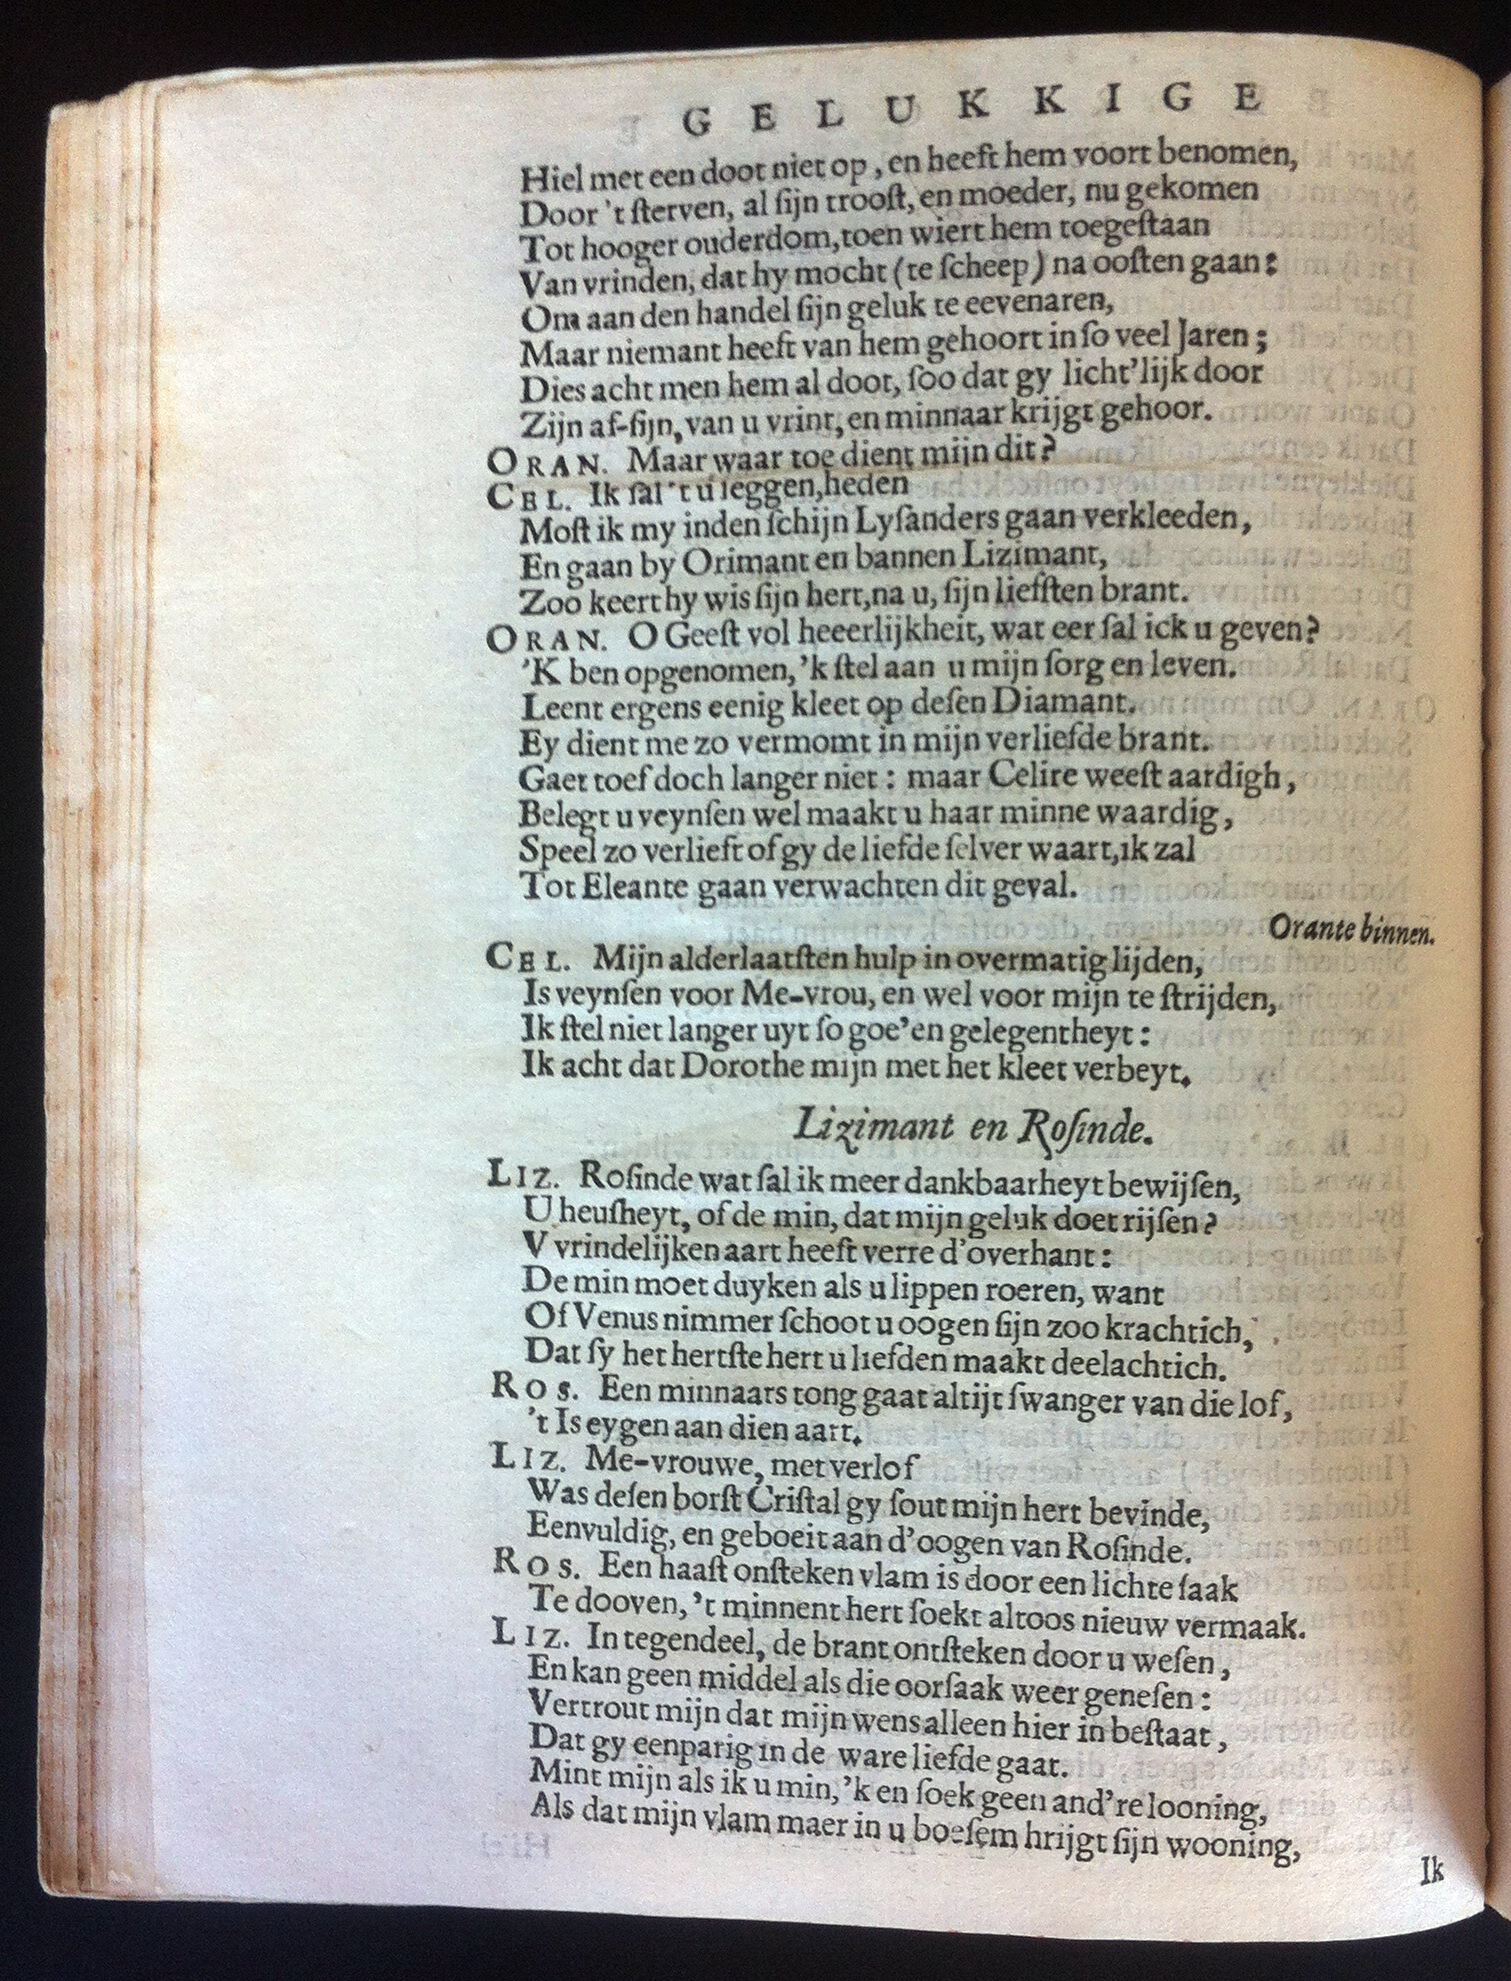 GELUKKIGE
Hiel met een doot niet op, en heeft hem voort benomen,
Door 't ſterven, al ſijn trooſt, en moeder, nu gekomen
Tot hooger ouderdom, toen wiert hem toegeſtaan
Van vrinden, dat hy mocht (te ſcheep) na ooſten gaan:
Om aan den handel ſijn geluk te eevenaren,
Maar niemant heeft van hem gehoort in ſo veel Jaren;
Dies acht men hem al doot, ſoo dat gy licht'lijk door
Zijn af-ſijn, van u vrint, en minnaar krijgt gehoor.
ORAN. Maar waar toe dient mijn dit?
CEL. Ik ſal 't u ſeggen, heden
Moſt ik my in den ſchijn Lyſanders gaan verkleeden,
En gaan by Orimant en bannen Lizimant,
Zoo keert hy wis ſijn hert, na u, ſijn liefſten brant.
ORAN. O Geeſt vol heeerlijkheit, wat eer ſal ick u geven?
'K ben opgenomen, 'k ſtel aan u mijn ſorg en leven.
Leent ergens eenig kleet op deſen Diamant.
Ey dient me zo vermomt in mijn verliefde brant.
Gaet toef doch langer niet: maar Celire weeſt aardigh,
Belegt u veynſen wel maakt u haar minne waardig,
Speel zo verlieft of gy de liefde ſelver waart, ik zal
Tot Eleante gaan verwachten dit geval.
Orante binnen.
CEL. Mijn alderlaatſten hulp in overmatig lijden,
Is veynſen voor Me-vrou, en wel voor mijn te ſtrijden,
Ik ſtel niet langer uyt ſo goe'en gelegentheyt:
Ik acht dat Dorothe mijn met het kleet verbeyt.
Lizimant en Roſinde.
LIZ. Roſinde wat ſal ik meer dankbaarheyt bewijſen,
U heuſheyt, of de min, dat mijn geluk doet rijſen?
V vrindelijken aart heeft verre d'overhant:
De min moet duyken als u lippen roeren, want
Of Venus nimmer ſchoot u oogen ſijn zoo krachtich,
Dat ſy het hertſte hert u liefden maakt deelachtich.
ROS. Een minnaars tong gaat altijt ſwanger van die lof,
't Is eygen aan dien aart.
LIZ. Me-vrouwe, met verlof
Was deſen borſt Criſtal gy ſout mijn hert bevinde,
Eenvuldig, en geboeit aan d'oogen van Roſinde.
ROS. Een haaſt onſteken vlam is door een lichte ſaak
Te dooven, 't minnent hert ſoekt altoos nieuw vermaak.
LIZ. In tegendeel, de brant ontſteken door u weſen,
En kan geen middel als die oorſaak weer geneſen:
Vertrout mijn dat mijn wens alleen hier in beſtaat,
Dat gy eenparig in de ware liefde gaat.
Mint mijn als ik u min, 'k en ſoek geen and're looning,
Als dat mijn vlam maer in u boeſem hrijgt ſijn wooning,
Ik